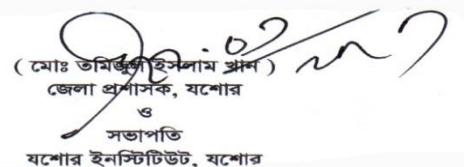 ( মোঃ তমিজুল ইসলাম খান )
জেলা প্রশাসক, যশোর
ও
সভাপতি
যশোর ইনস্টিটিউট, যশোর